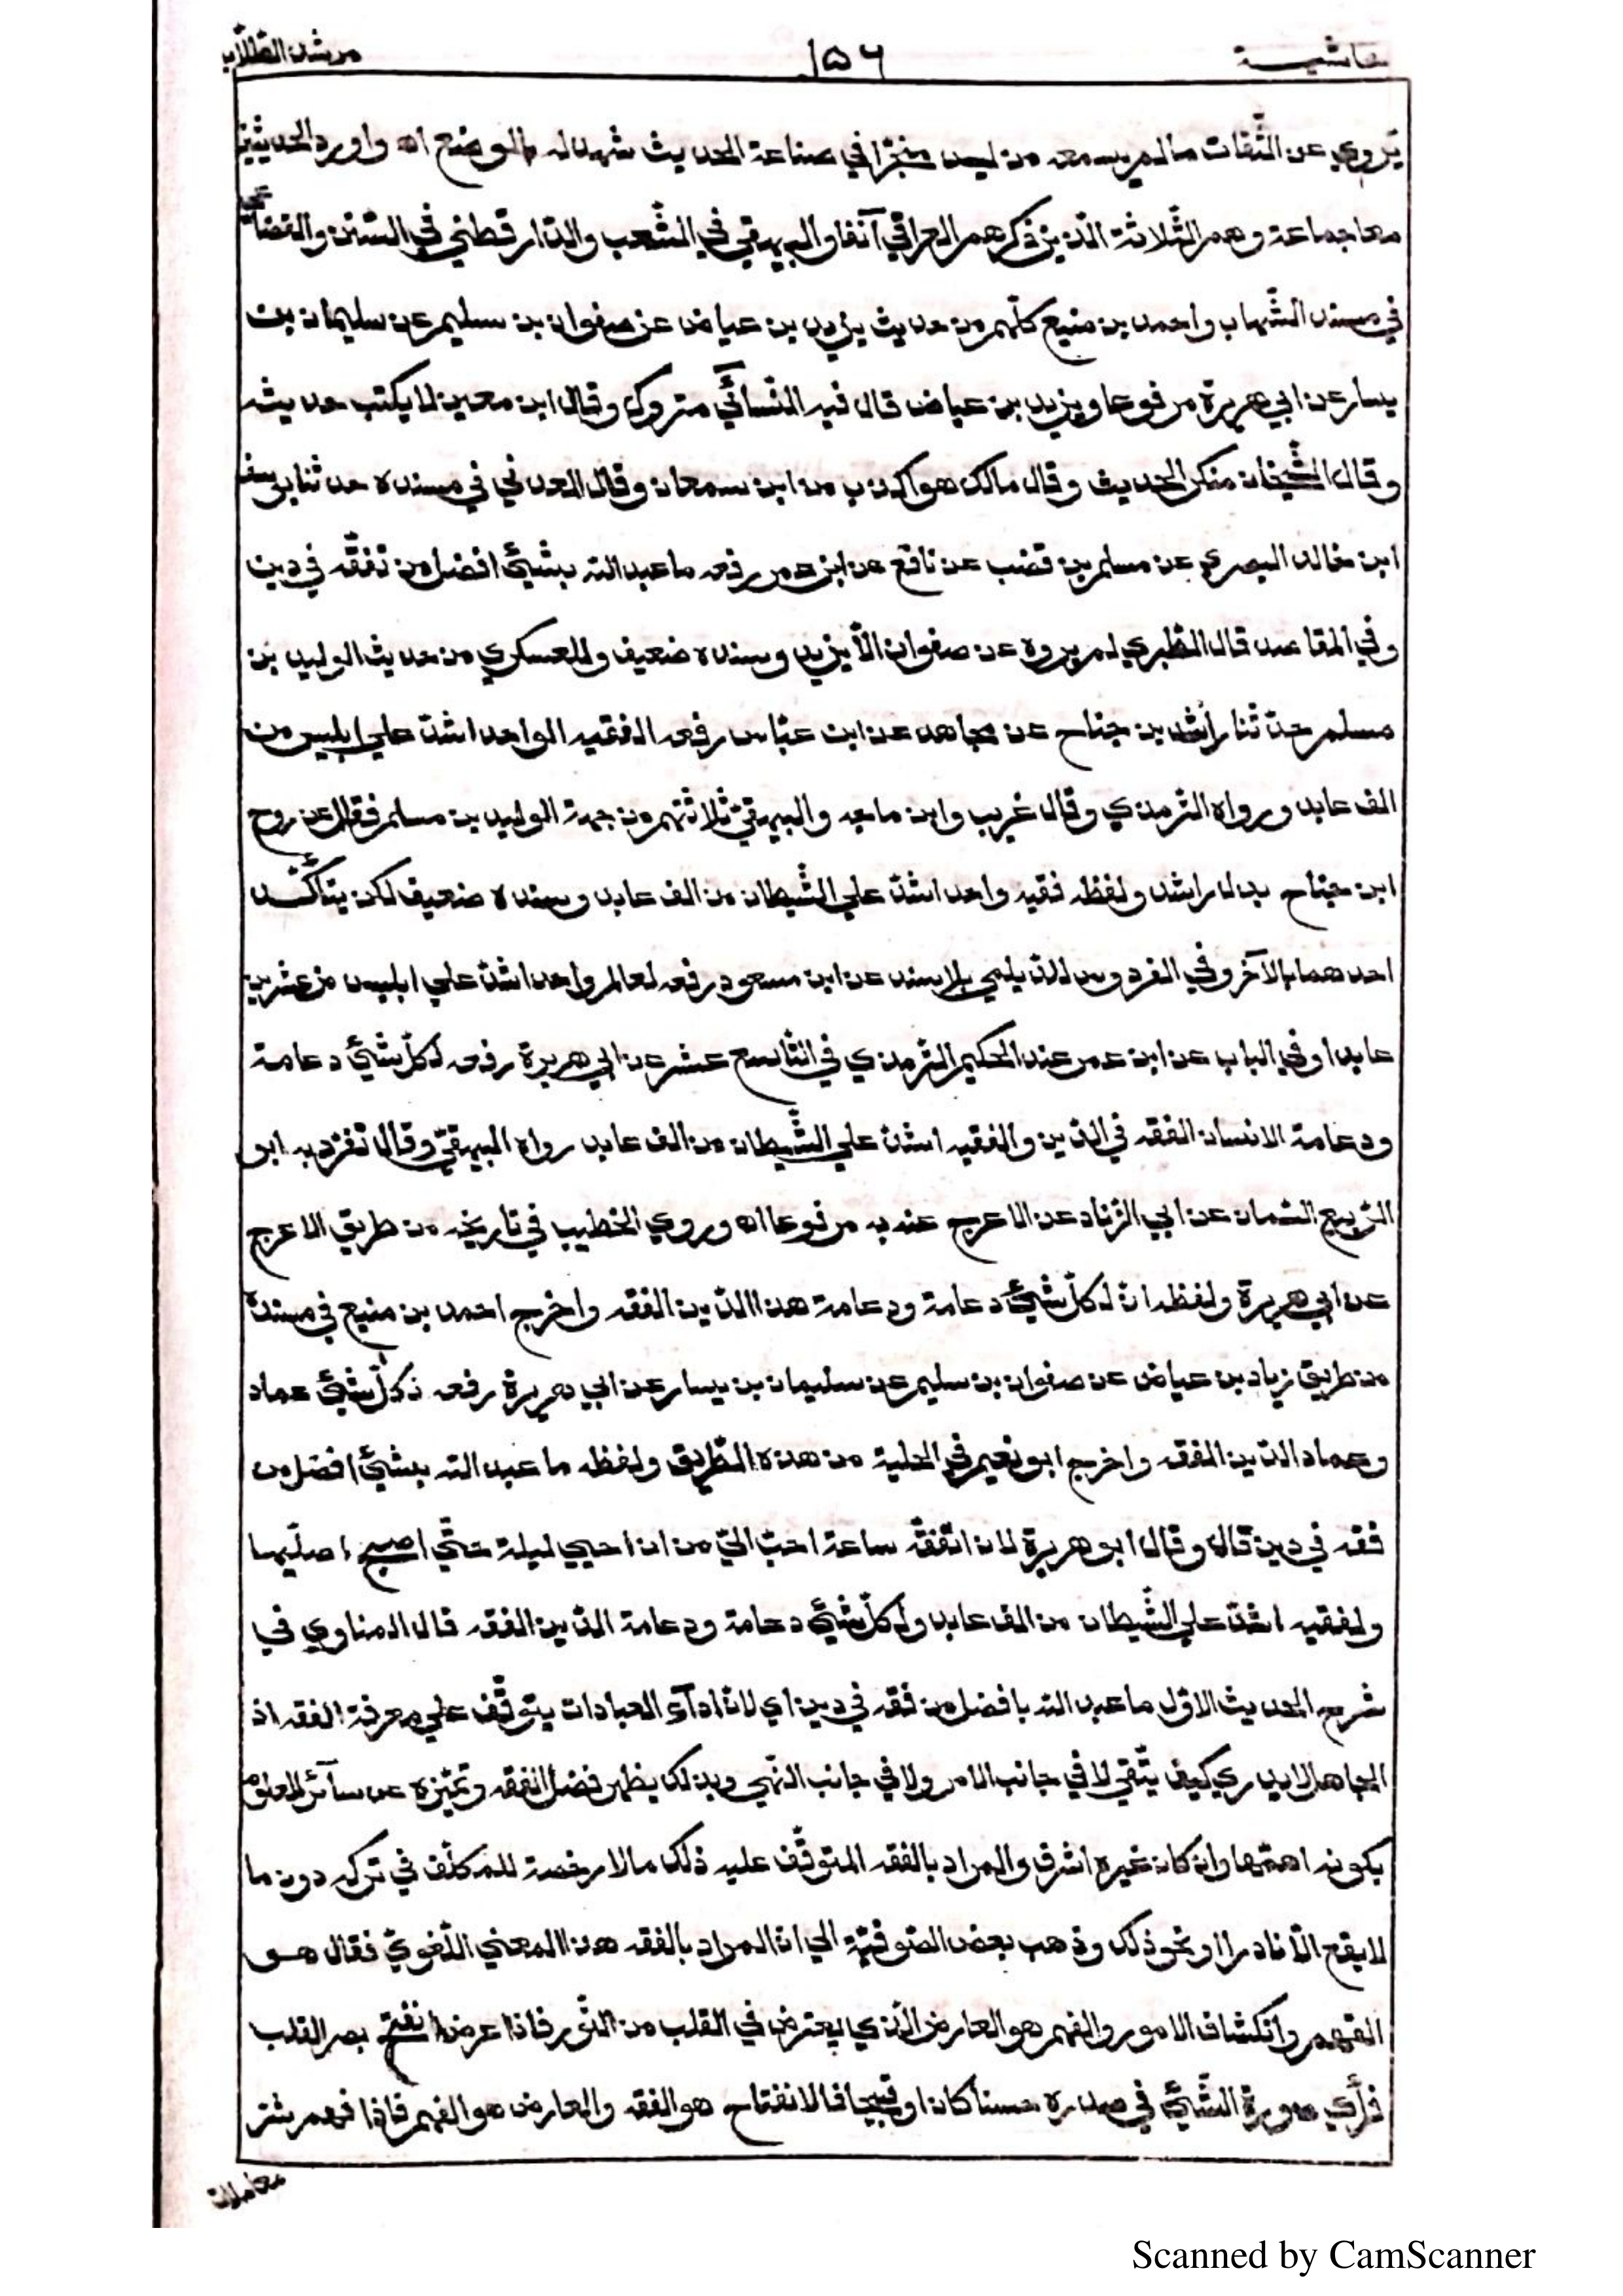 حاشية ١٥٦ مرشد الطّلّاب
يَروي عن الثّقات مالم يسمعه من ليس متجرّا في صناعة الحديث شهد له بالوضع اه واورد الحديثين
معا جماعة وهم الثّلاثة الّذين ذكرهم العراقي آنفا والبيهقي في الشّعب والدّارقطني في السّنن والقضاعي
في مسند الشّهاب واحمد بن منيع كلّهم من حديث يزيد بن عياض عن صفوان بن سليم عن سليمان بن
يسار عن ابي هريرة مرفوعا ويزيد بن عياض قال فيه النّسآئي متروك وقال ابن معين لا يكتب حديثه
وقال الشّيخان منكر الحديث وقال مالك هو اكذب من ابن سمعان وقال العدني في مسنده حدثنا يوسف
ابن خالد البصري عن مسلم بن قضب عن نافع عن ابن عمر رفعه ما عبد الله بشيئ افضل من تفقّه في دين
وفي المقاصد قال الطّبري لم يروه عن صفوان الّا يزيد وسنده ضعيف وللعسكري من حديث الوليد بن
مسلم حدّثنا راشد بن جناح عن مجاهد عن ابن عبّاس رفعه الفقيه الواحد اشدّ علي ابليس من
الف عابد ورواه الترمذي وقال غريب وابن ماجه والبيهقيّ ثلاثتهم من جهة الوليد بن مسلم فقال عن روح
ابن جناح بدل راشد ولفظه فقيه واحد اشدّ علي الشّيطان من الف عابد وسنده ضعيف لكن يتأكّد
احدهما بالآخر وفي الفردوس للدّيلمي بلا سند عن ابن مسعود رفعه لعالم واحد اشدّ علي ابليس من عشرين
عابدا وفي الباب عن ابن عمر عند الحكيم الترمذي في التّاسع عشر عن ابي هريرة رفعه لكلّ شيئ دعامة
ودعامة الانسان الفقه في الدّين والفقيه اشدّ علي الشّيطان من الف عابد رواه البيهقيّ وقال تفرّد به ابو
الرّبيع السّمان عن ابي الزّناد عن الاعرج عنه به مرفوعا اه وروي الخطيب في تاريخه من طريق الاعرج
عن ابي هريرة ولفظه انّ لكلّ شيئ دعامة ودعامة هذا الدّين الفقه واخرج احمد بن منيع في مسنده
من طريق زياد بن عياض عن صفوان بن سليم عن سليمان بن يسار عن ابي هريرة رفعه لكلّ شيئ عماد
وعماد الدّين الفقه واخرج ابو نعيم في الحلية من هذه الطّريق ولفظه ما عبد الله بشيئ افضل من
فقه في دين قال وقال ابو هريرة لان اتفقّه ساعة احبّ اليّ من ان احيي ليلة حتّي اصبح اصلّيها
ولفقيه اشدّ علي الشّيطان من الف عابد ولكلّ شيئ دعامة ودعامة الدّين الفقه قال المناوي في
شرح الحديث الاوّل ما عبد الله بافضل من فقه في دين اي لانّ ادآء العبادات يتوقّف علي معرفة الفقه اذ
الجاهل لا يدري كيف يتّقي لا في جانب الامر ولا في جانب النّهي وبذلك يظهر فضل الفقه وتميّزه عن سآئر العلوم
بكونه اهمّها وان كان غيره اشرف والمراد بالفقه المتوقّف عليه ذلك ما لا رخصة للمكلّف في تركه دون ما
لا يقع الّا نادرا او نحو ذلك وذهب بعض الصّوفيّة الي انّ المراد بالفقه هنا المعني اللّغويّ فقال هو
الفهم وانكشاف الامور والفهم هو العارض الّذي يعترض في القلب من النّور فاذا عرض انفتح بصر القلب
فرأي صورة الشّيئ في صدره حسنا كان او قبيحا فالانفتاح هو الفقه والعارض هو الفهم فاذا فهم شر
معاملات
Scanned by CamScanner